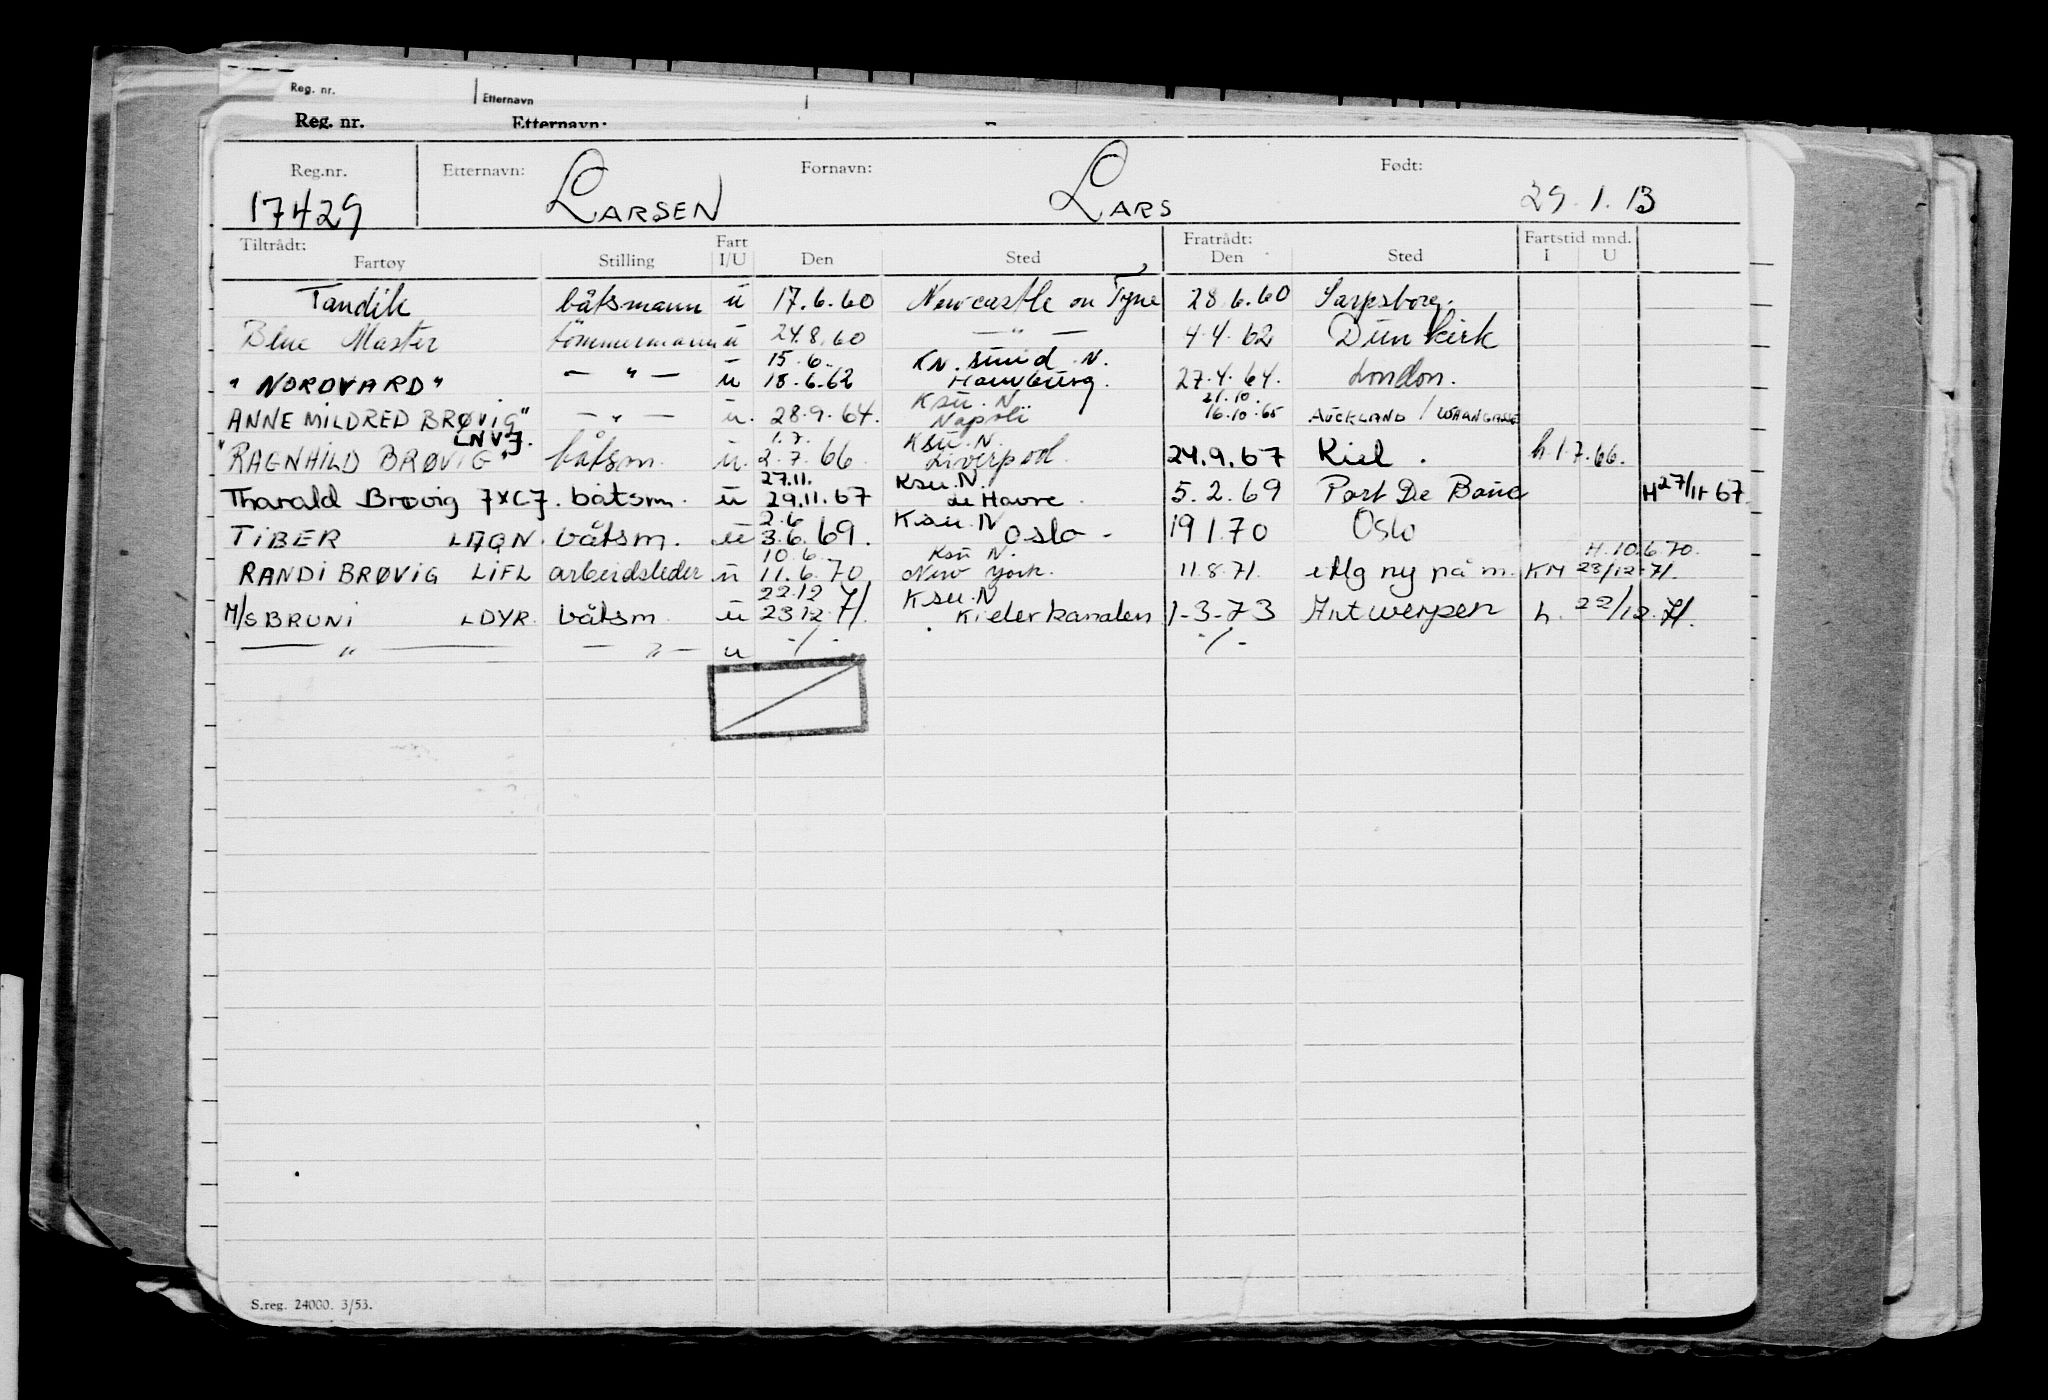 Reg. nr. Etternavn
Reg. nr. Etternavn:
Reg.nr. Etternavn: Fornavn: Født:
17429 LARSEN LARS 29.1.13
Tiltrådt: Fart Fratrådt: Fartstid mnd.
Fartøy Stilling I/U Den Sted Den Sted I U
Tandik båtsmann u 17.6.60 Newcastle on Tyne 28.6.60 Sarpsborg.
Blue Master tömmermann u 24.8.60 — " — 4.4.62 Dunkirk
15.6. Kr. sund .N.
"NORDVARD" — " — u 18.6.62 Hamburg. 27.4.64. London.
Ksu. N. 21.10.
ANNE MILDRED BRØVIG" — " — u. 28.9.64. Napoli 16.10.65 AUCKLAND /
LNVJ. 1.7. Ksu. N.
"RAGNHILD BRØVIG" båtsm. u. 2.7.66. Liverpool. 24.9.67 Kiel. h.1.7.66.
27.11. Ksu. N.
Tharald Brøvig JXCJ. båtsm. u 29.11.67 Le Havre. 5.2.69 Port De Bouc H 27/11 67
2.6 Ksu. N
TIBER LAQN. båtsm. u 3.6.69. Oslo - 19 1.70 Oslo
10.6. Ksu N. H.10.6.70.
RANDI BRØVIG LIFL arbeidsleder u 11.6.70 New York. 11.8.71. ny på m. KM 23/12.71.
22.12 Ksu. N
M/S BRUNI LDYR. båtsm. u 23 12.71. Kielerkanalen 1-3-73 Antwerpen h. 22/12.71.
— " — — " — u -/- -/-
S.reg. 24000. 3/53.